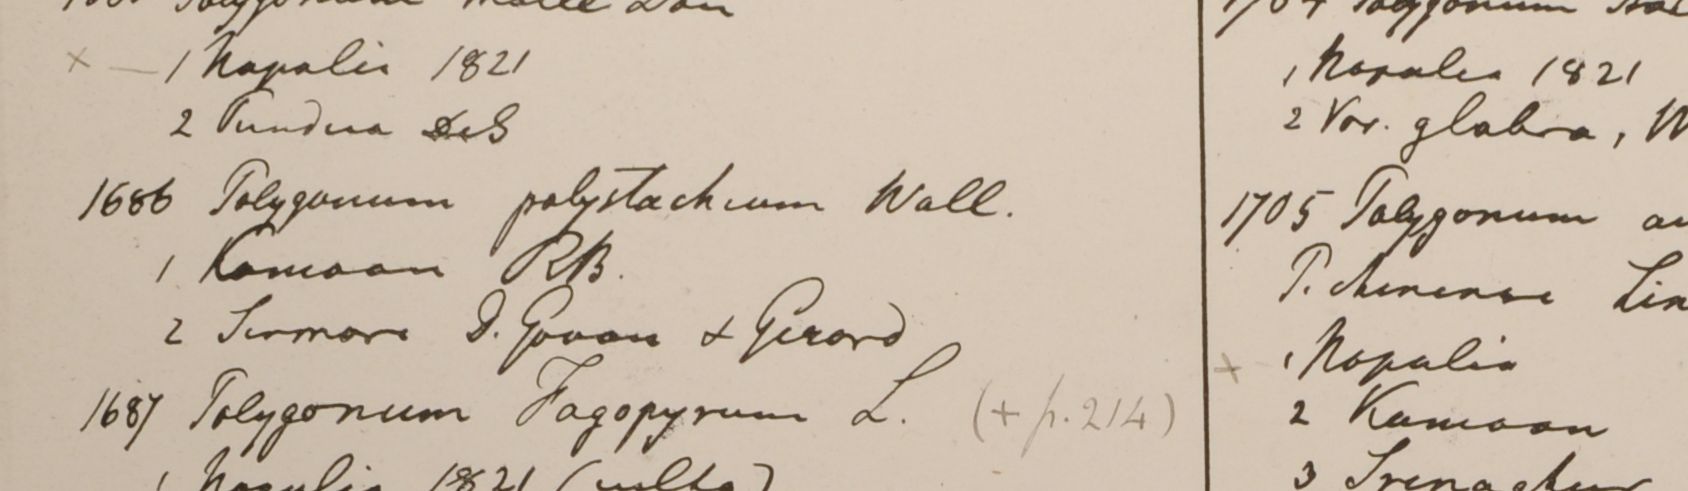 Polygonum molle Don
× — 1 Napalia 1821
2 Pundua DeS
1686 Polygonum polystachium Wall.
1 Kamaon RB.
2 Sirmore D. Govan & Gerard
1687 Polygonum Fagopyrum L. (+ p. 214)
1 Napalia 1821 (culta)
1704 Polygonum
1 Napalia 1821
2 Var. glabra, W
1705 Polygonum
P. chinense Lin
× 1 Napalia
2 Kamaon
3 Srenaghur